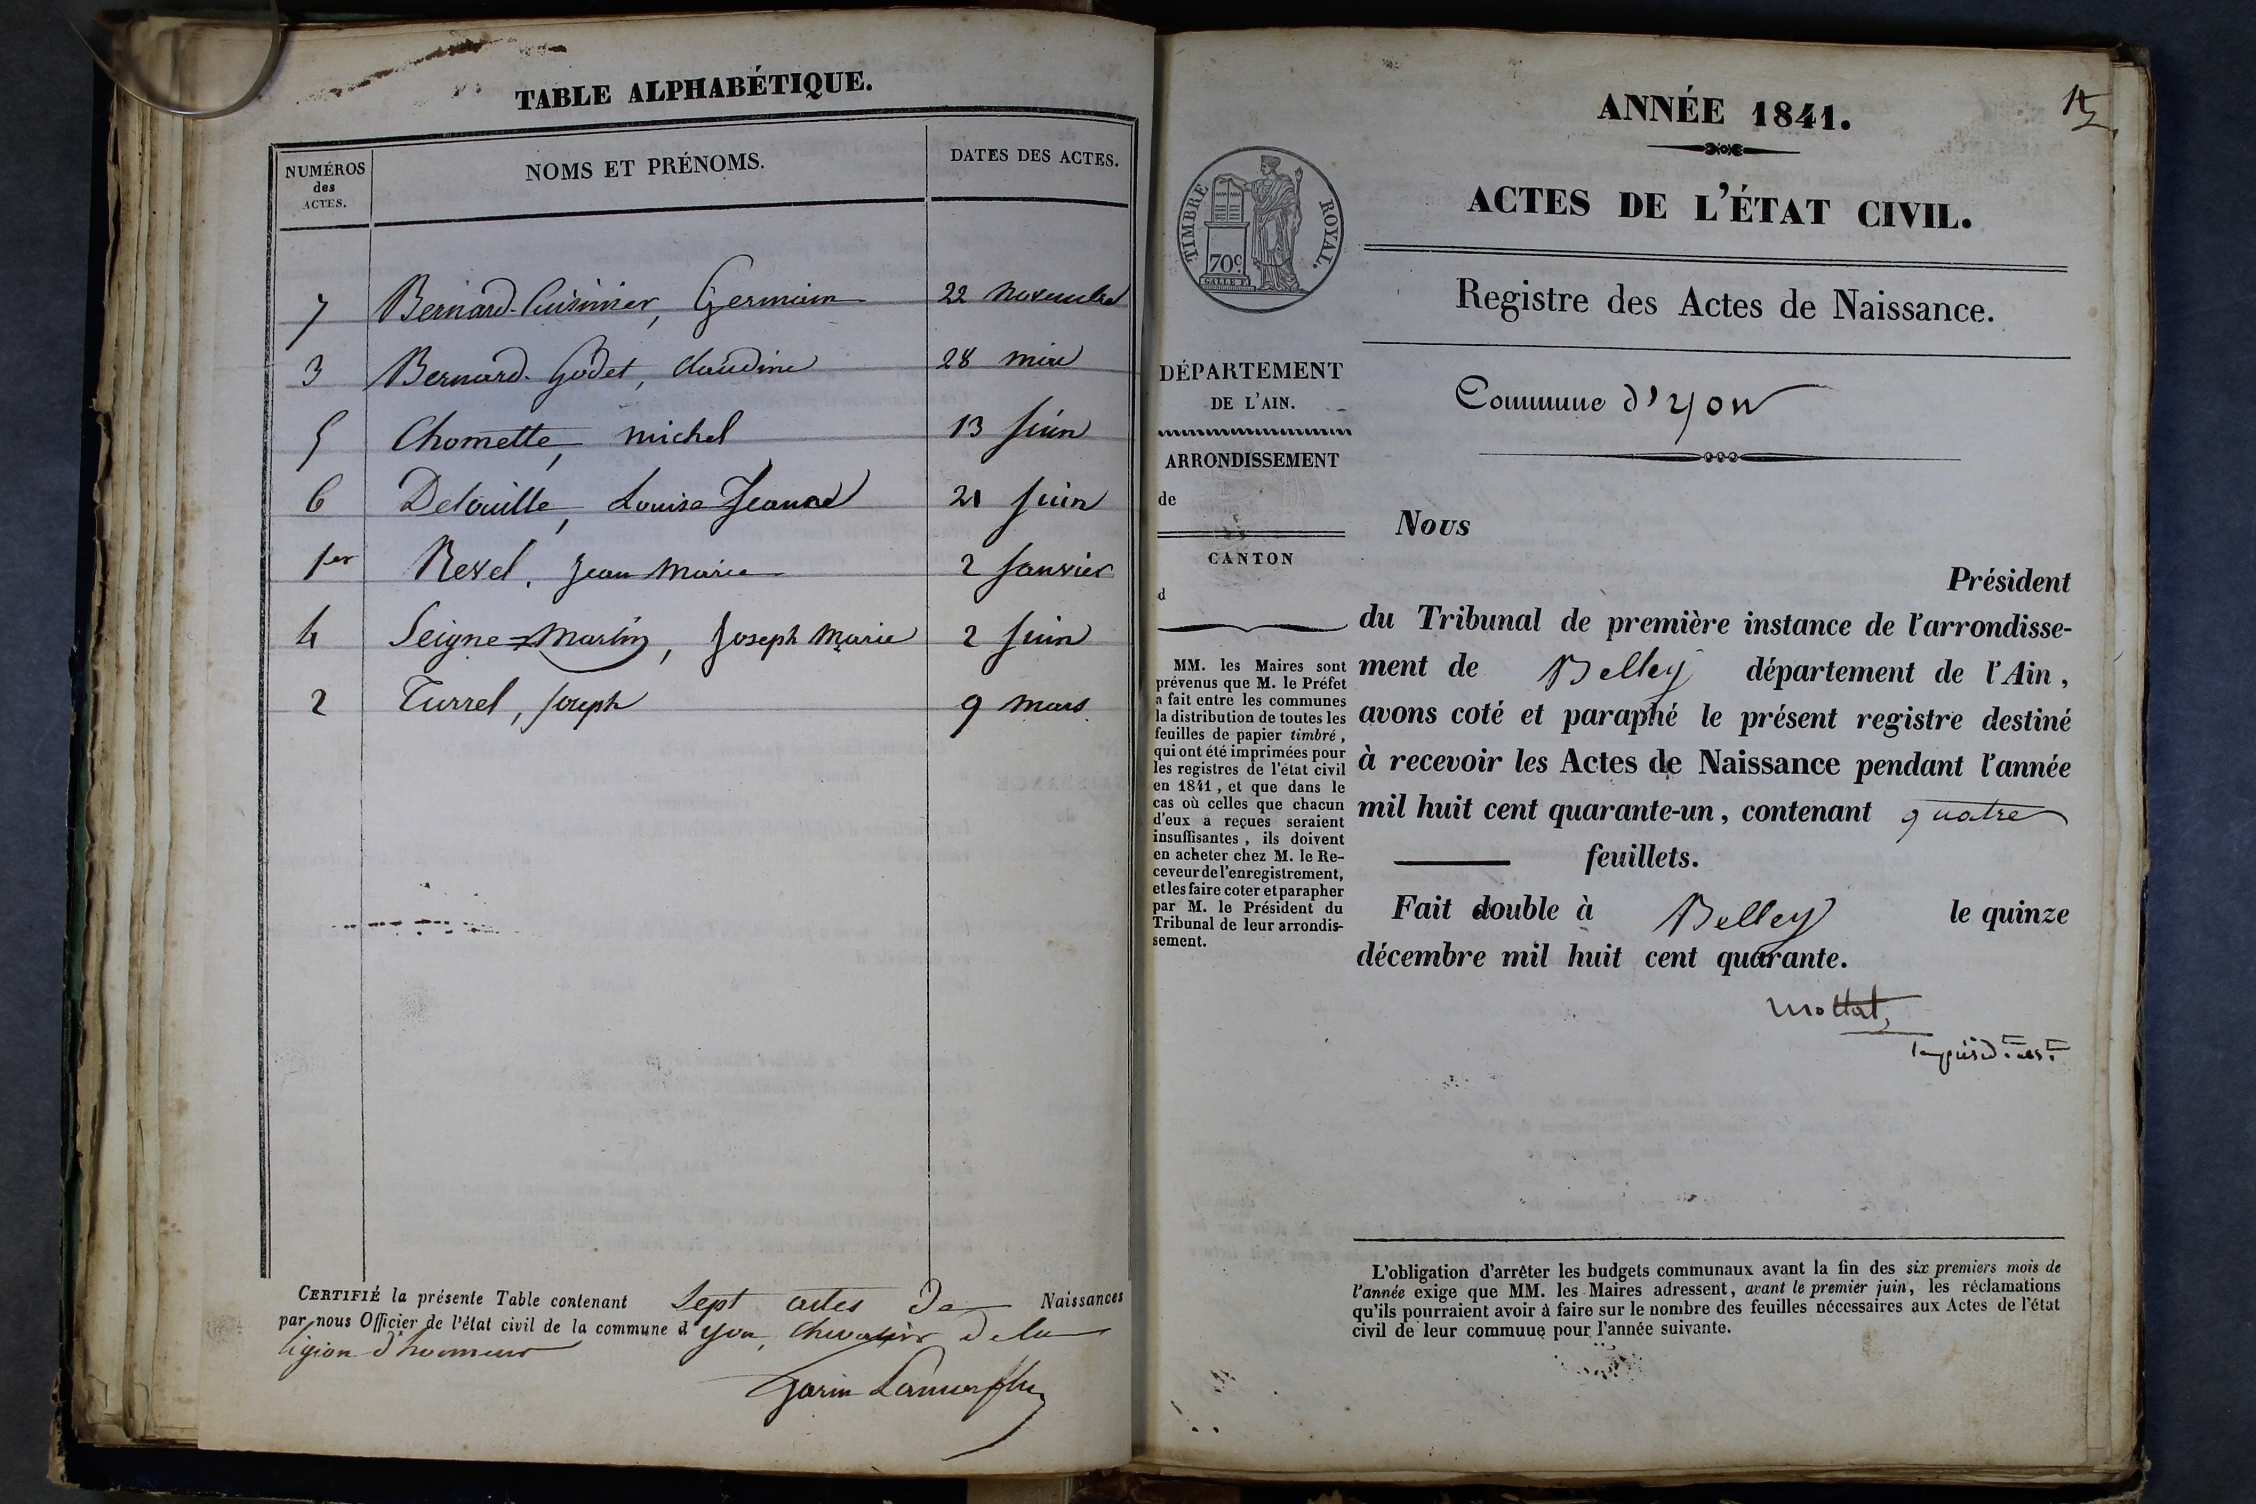 TABLE ALPHABÉTIQUE.
NUMÉROS des ACTES.
NOMS ET PRÉNOMS.
DATES DES ACTES.
7 Bernard-Cuisinier, Germain 22 novembre
3 Bernard-Godet, Claudine 28 mai
5 Chomette, michel 13 Juin
6 Delouille, Louise Jeanne 21 Juin
1er Revel, Jean Marie 2 Janvier
4 Seigne=Martin, Joseph Marie 2 Juin
2 Turrel, Joseph 9 mars
CERTIFIÉ la présente Table contenant Sept actes de Naissances
par nous Officier de l'état civil de la commune d'yon, chevalier de la
légion d'honneur
Garin
ANNÉE 1841.
ACTES DE L'ÉTAT CIVIL.
Registre des Actes de Naissance.
Commune d'yon
TIMBRE ROYAL.
70c.
DÉPARTEMENT
DE L'AIN.
ARRONDISSEMENT
de
CANTON
d
MM. les Maires sont
prévenus que M. le Préfet
a fait entre les communes
la distribution de toutes les
feuilles de papier timbré,
qui ont été imprimées pour
les registres de l'état civil
en 1841, et que dans le
cas où celles que chacun
d'eux a reçues seraient
insuffisantes, ils doivent
en acheter chez M. le Re-
ceveur de l'enregistrement,
et les faire coter et parapher
par M. le Président du
Tribunal de leur arrondis-
sement.
Nous
Président
du Tribunal de première instance de l'arrondisse-
ment de Belley département de l'Ain,
avons coté et paraphé le présent registre destiné
à recevoir les Actes de Naissance pendant l'année
mil huit cent quarante-un, contenant quatre
feuillets.
Fait double à Belley le quinze
décembre mil huit cent quarante.
L'obligation d'arrêter les budgets communaux avant la fin des six premiers mois de
l'année exige que MM. les Maires adressent, avant le premier juin, les réclamations
qu'ils pourraient avoir à faire sur le nombre des feuilles nécessaires aux Actes de l'état
civil de leur commune pour l'année suivante.